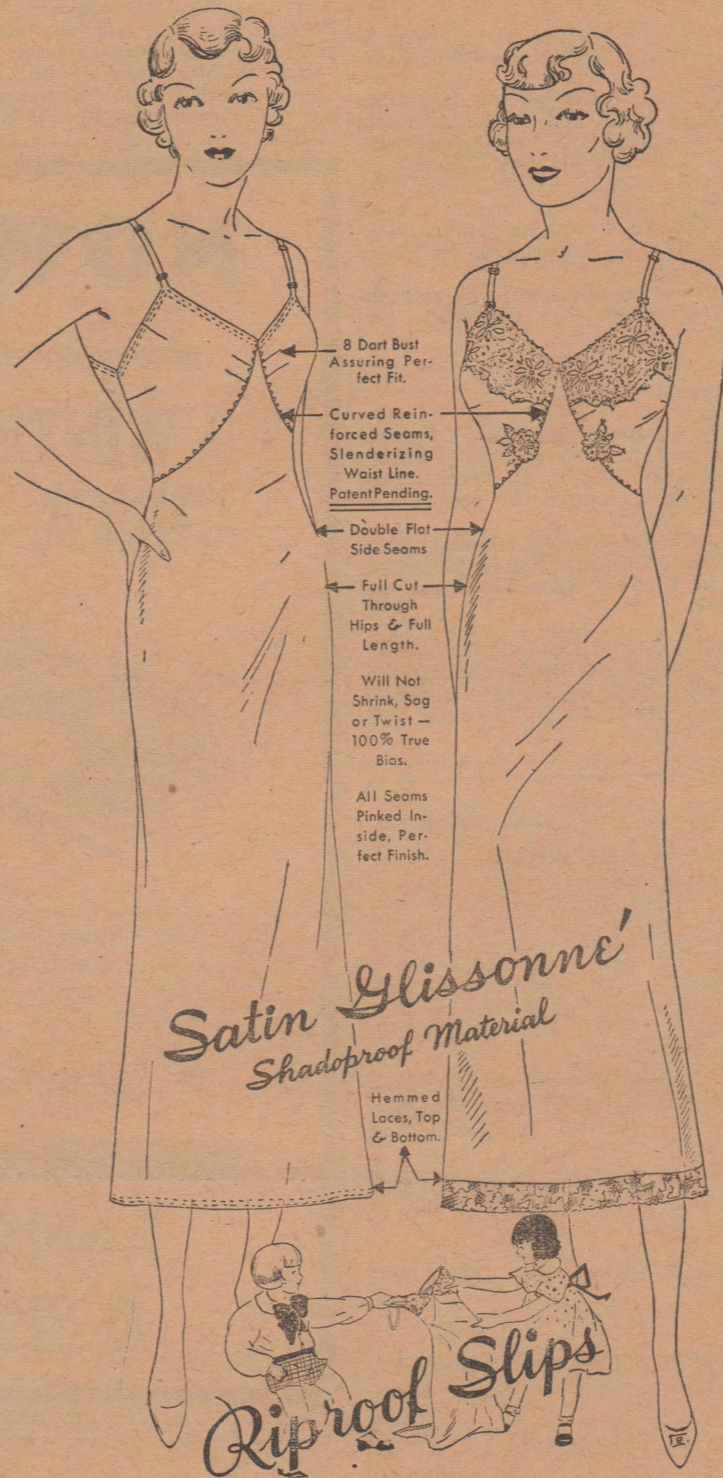 8 Dart Bust
Assuring Per-
fect Fit.
Curved Rein-
forced Seams,
Slenderizing
Waist Line.
Patent Pending.
Double Flat
Side Seams
Full Cut
Through
Hips & Full
Length.
Will Not
Shrink, Sag
or Twist —
100% True
Bias.
All Seams
Pinked In-
side, Per-
fect Finish.
Satin Glissonné
Shadoproof Material
Hemmed
Laces, Top
& Bottom.
Riproof Slips